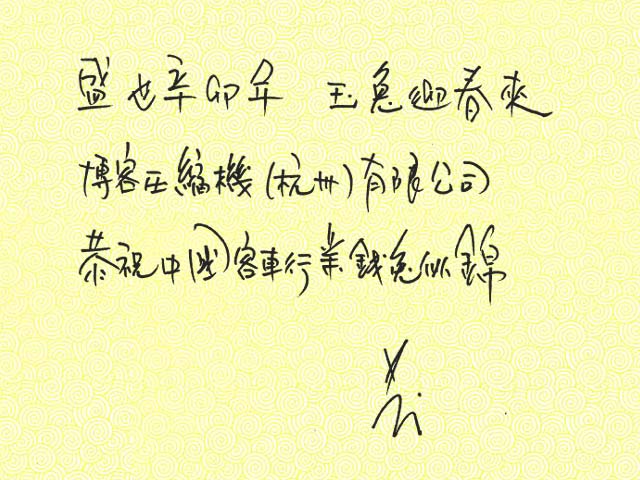 盛世辛卯年 玉兔迎春來
博客压縮機(杭州)有限公司
恭祝中國客車行業錢兔似錦